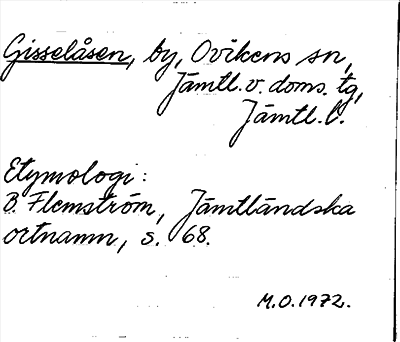 Gisselåsen, by, Ovikens sn,
Jämtl. v. doms. tg,
Jämtl. l.
Etymologi:
B. Flemström, Jämtländska
ortnamn, s. 68.
M.O. 1972.